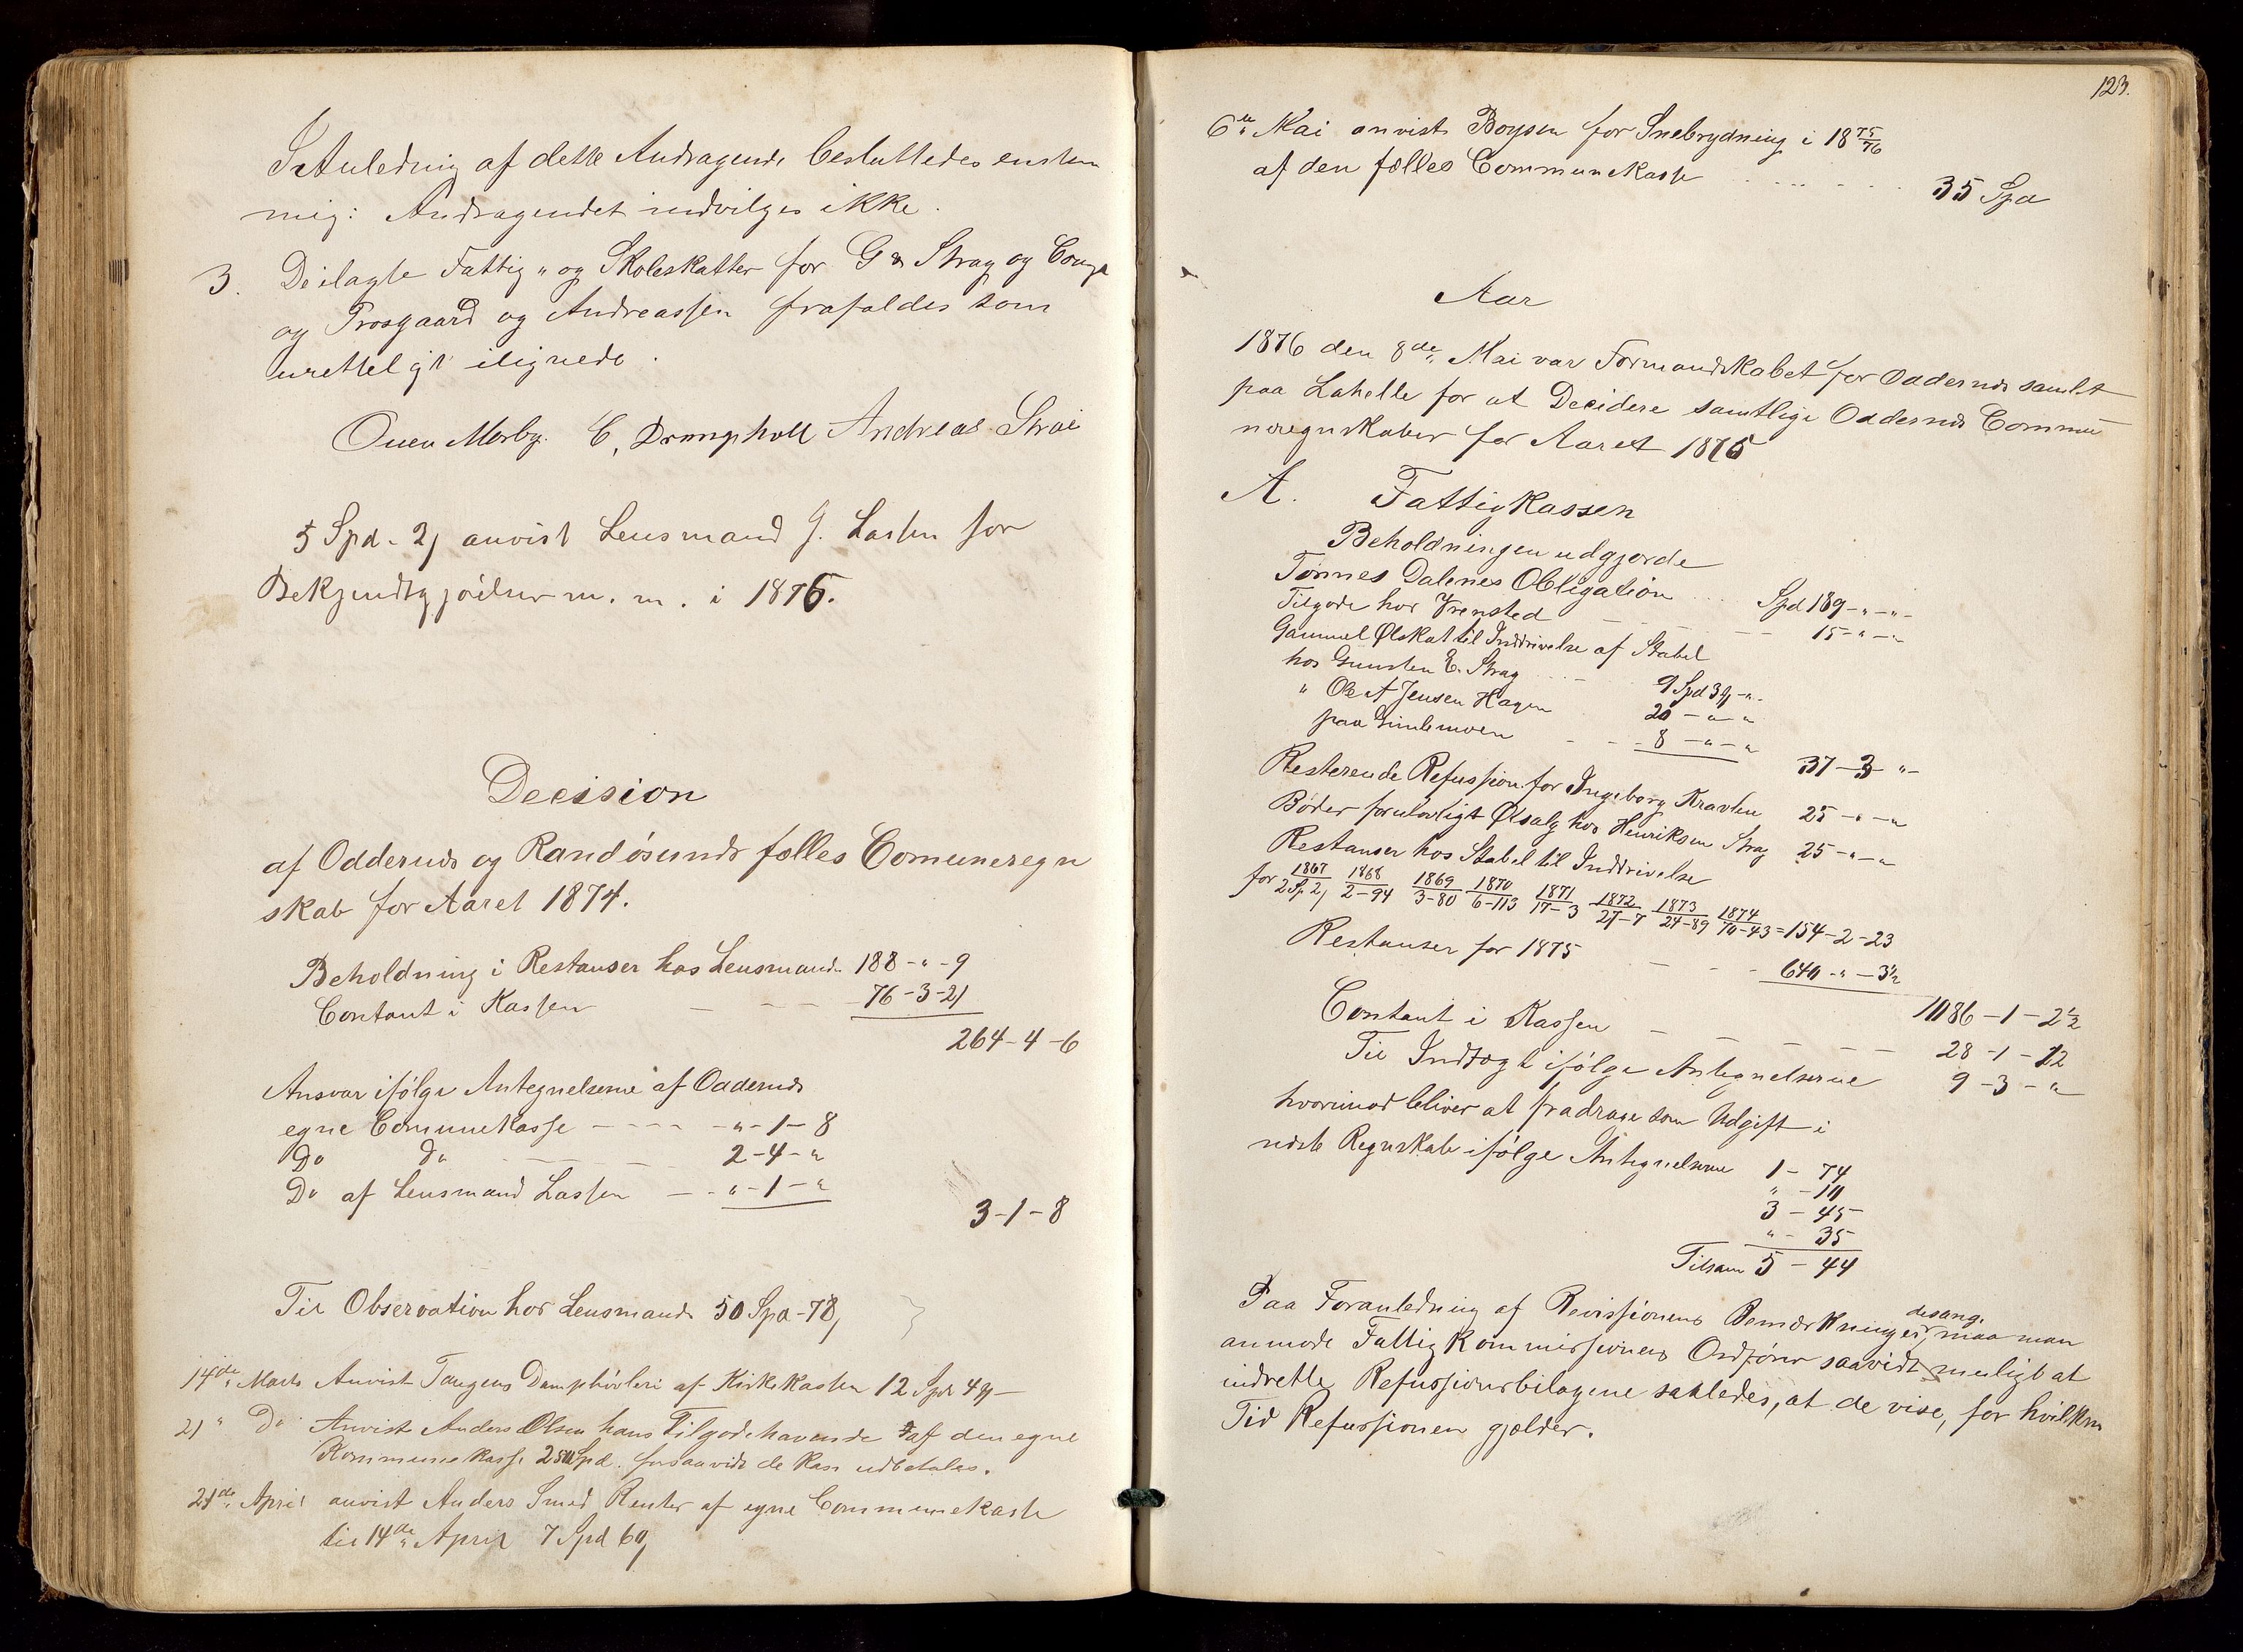 I Anledning af dette Andragende besluttedes enstem
mig: Andragendet indvilges ikke.
3. De ilagte Fattig- og Skoleskatter for G & Strag og Comp
og Prosgaard og Andreassen frafaldes som
urettelgt ilignede.
Ouen Mosby. C. Drangsholt Andreas Strai
5 Spd. 21 anvist Lensmand J. Lassen for
Bekjendtgjörelser m. m. i 1875.
Decision
af Oddernes og Randösunds fælles Comuneregn
skab for Aaret 1874.
Beholdning i Restanser hos Lensmand. 188-"-9
Contant i Kassen - - - - 76-3-21
264-4-6
Ansvar ifölge Antegnelserne af Oddernes
egne Communekasse - - - - "-1-8
Do do - - - 2-4-"
Do af Lensmand Lassen - - "-1-"
3-1-8
Til Observation hos Lensmand 50 Spd-78,
14de Marts Anvist Tangens Damphövleri af Kirkekassen 12 Spd 49-
21 " Do Anvist Anders Olsen hans Tilgodehavende af den egne
Kommunekasse 250 Spd. forsaavidt de kan udbetales.
21de April anvist Anders Smed Renter af egne Communekasse
til 14de April 7 Spd 60,
123.
6te Mai anvist Boysen for Snebrydning i 1875/76
af den fælles Communekasse . . . . . . 35 Spd
Aar
1876 den 8de Mai var Formandskabet for Oddernes samlet
paa Lahelle for at Decidere samtlige Oddernes Commu
neregnskaber for Aaret 1875
A. Fattigkassen
Beholdningen udgjorde
Tönnes Dalenes Obligation . . . Spd 189-"-"-
Tilgode hos Vrensted - - - - - 15-"-"
Gammel Ølskat til Inddrivelse af Stabel
hos Gunsten E. Strag . . . - 9 Spd 3 -".
" Ole A Jensen Hagen 20 -"-"
paa Gimlemoen - - - 8 -"-"
37-3-"-
Resterende Refussion for Ingeborg Kravlen 25 -"-"
Böder for ulovligt Ølsalg hos Henriksen Strag 25 -"-"
Restanser hos Stabel til Inddrivelse
for 1867 1868 1869 1870 1871 1872 1873 1874
2 Sp 2, 2-94 3-80 6-113 17-3 27-7 24-89 70-43 = 154-2-23
Restanser for 1875 - - - 640-"-3½
1086-1-2½
Contant i Kassen - - - - - 28-1-12
Til Indtægt ifölge Antegnelserne 9-3-"
hvorimod bliver at fradrage som Udgift i
næste Regnskab ifölge Antegnelserne 1-74
"-10
3-45
"-35
Tilsam 5-44
Paa Foranledning af Revissionens Bemærkninger desang. maa man
anmode Fattigkommissionens Ordförer saavidt muligt at
indrette Refussionsbilagene saaledes, at de vise, for hvilken
Tid Refussionen gjælder.